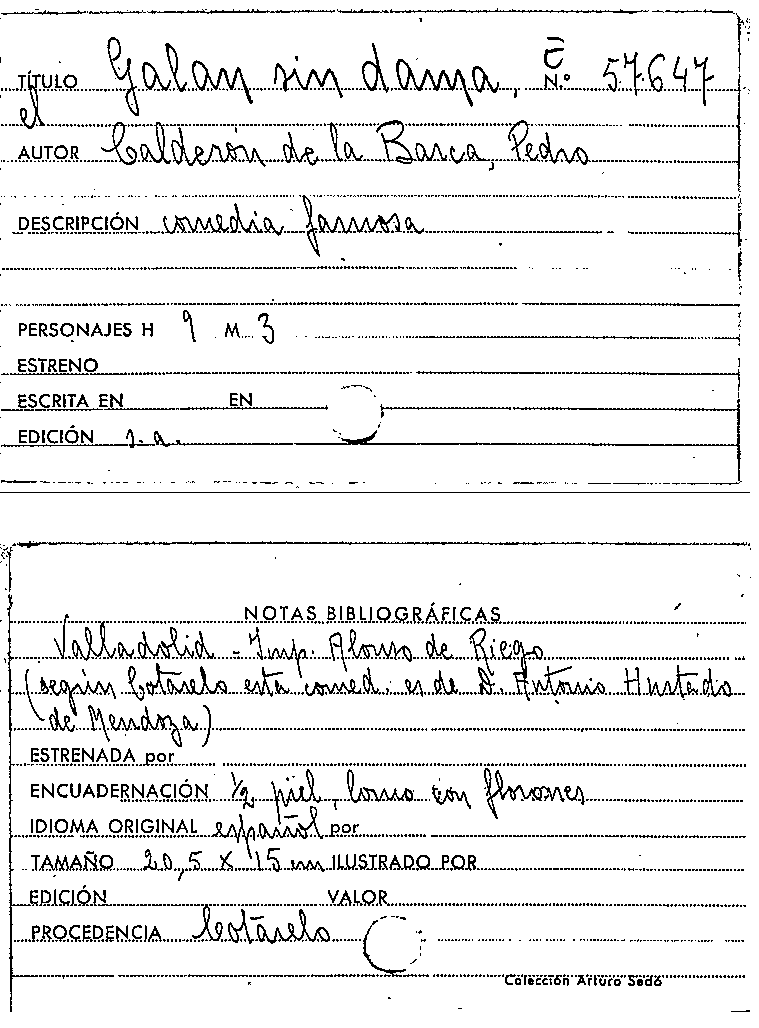 TÍTULO Galan sin dama, C N.º 57.647
el
AUTOR Calderón de la Barca, Pedro
DESCRIPCIÓN comedia famosa
PERSONAJES H 9 M 3
ESTRENO
ESCRITA EN EN
EDICIÓN s.a.
NOTAS BIBLIOGRÁFICAS
Valladolid - Imp. Alonso de Riego
(según Cotarelo esta comed. es de D. Antonio Hurtado
de Mendoza)
ESTRENADA por
ENCUADERNACIÓN ½ piel, lomo con florones
IDIOMA ORIGINAL español por
TAMAÑO 20,5 x 15 cm ILUSTRADO POR
EDICIÓN VALOR
PROCEDENCIA Cotarelo
Colección Arturo Sedó